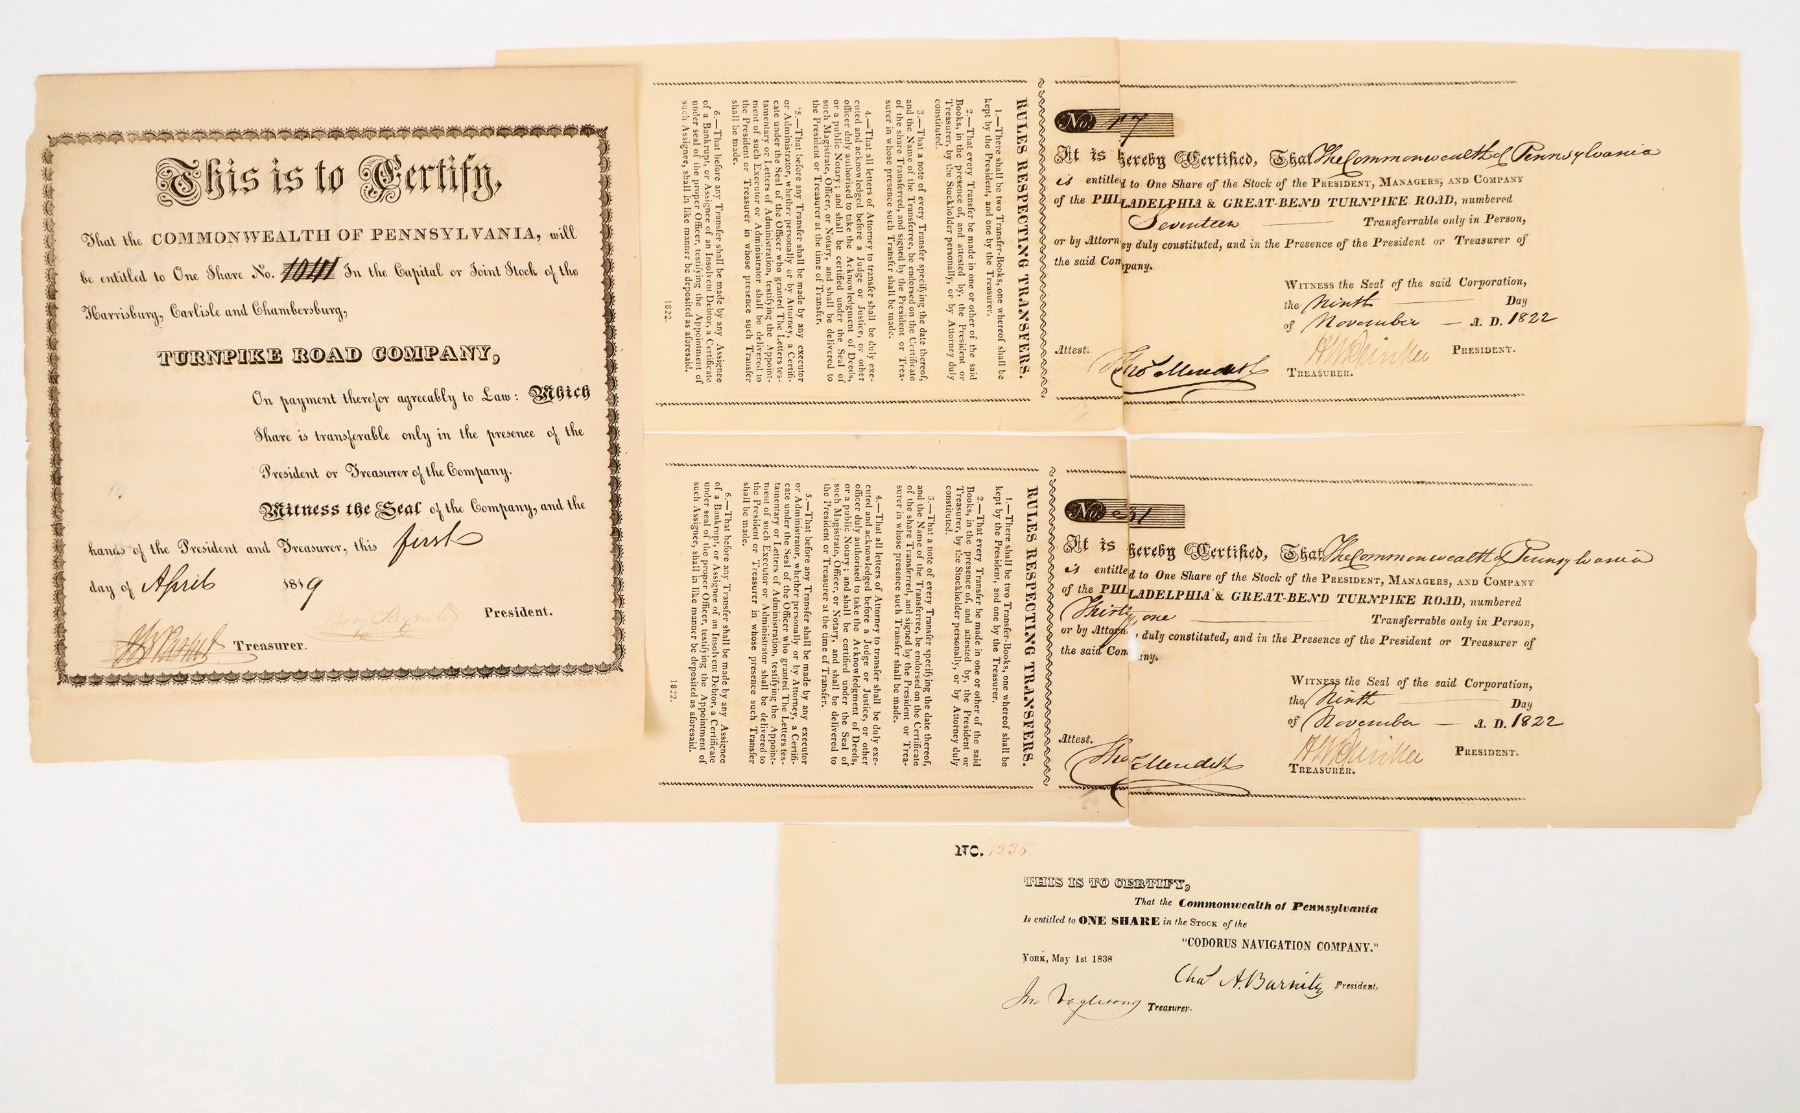 This is to Certify,
That the COMMONWEALTH OF PENNSYLVANIA, will
be entitled to One Share No. 1041 In the Capital or Joint Stock of the
Harrisburg, Carlisle and Chambersburg,
TURNPIKE ROAD COMPANY,
On payment therefor agreeably to Law: Which
Share is transferable only in the presence of the
President or Treasurer of the Company.
Witness the Seal of the Company, and the
hands of the President and Treasurer, this first
day of April 1819
President.
Treasurer.
RULES RESPECTING TRANSFERS.
1.—There shall be two Transfer-Books, one whereof shall be
kept by the President, and one by the Treasurer.
2.—That every Transfer be made in one or other of the said
Books, in the presence of, and attested by, the President or
Treasurer, by the Stockholder personally, or by Attorney duly
constituted.
3.—That a note of every Transfer specifying the date thereof,
and the Name of the Transferree, be endorsed on the Certificate
of the share Transferred, and signed by the President or Trea-
surer in whose presence such Transfer shall be made.
4.—That all letters of Attorney to transfer shall be duly exe-
cuted and acknowledged before a Judge or Justice, or other
officer duly authorised to take the Acknowledgment of Deeds,
or a public Notary; and shall be certified under the Seal of
such Magistrate, Officer, or Notary, and shall be delivered to
the President or Treasurer at the time of Transfer.
5.—That before any Transfer shall be made by any executor
or Administrator, whether personally or by Attorney, a Certifi-
cate under the Seal of the Officer who granted The Letters tes-
tamentary or Letters of Administration, testifying the Appoint-
ment of such Executor or Administrator shall be delivered to
the President or Treasurer in whose presence such Transfer
shall be made.
6.—That before any Transfer shall be made by any Assignee
of a Bankrupt, or Assignee of an Insolvent Debtor, a Certificate
under seal of the proper Officer, testifying the Appointment of
such Assignee, shall in like manner be deposited as aforesaid.
1822.
No. 17
It is hereby Certified, That The Commonwealth of Pennsylvania
is entitled to One Share of the Stock of the PRESIDENT, MANAGERS, AND COMPANY
of the PHILADELPHIA & GREAT-BEND TURNPIKE ROAD, numbered
Seventeen Transferrable only in Person,
or by Attorney duly constituted, and in the Presence of the President or Treasurer of
the said Company.
WITNESS the Seal of the said Corporation,
the Ninth Day
of November A. D. 1822
PRESIDENT.
Attest.
Thos Meredith TREASURER.
RULES RESPECTING TRANSFERS.
1.—There shall be two Transfer-Books, one whereof shall be
kept by the President, and one by the Treasurer.
2.—That every Transfer be made in one or other of the said
Books, in the presence of, and attested by, the President or
Treasurer, by the Stockholder personally, or by Attorney duly
constituted.
3.—That a note of every Transfer specifying the date thereof,
and the Name of the Transferree, be endorsed on the Certificate
of the share Transferred, and signed by the President or Trea-
surer in whose presence such Transfer shall be made.
4.—That all letters of Attorney to transfer shall be duly exe-
cuted and acknowledged before a Judge or Justice, or other
officer duly authorised to take the Acknowledgment of Deeds,
or a public Notary; and shall be certified under the Seal of
such Magistrate, Officer, or Notary, and shall be delivered to
the President or Treasurer at the time of Transfer.
5.—That before any Transfer shall be made by any executor
or Administrator, whether personally or by Attorney, a Certifi-
cate under the Seal of the Officer who granted The Letters tes-
tamentary or Letters of Administration, testifying the Appoint-
ment of such Executor or Administrator shall be delivered to
the President or Treasurer in whose presence such Transfer
shall be made.
6.—That before any Transfer shall be made by any Assignee
of a Bankrupt, or Assignee of an Insolvent Debtor, a Certificate
under seal of the proper Officer, testifying the Appointment of
such Assignee, shall in like manner be deposited as aforesaid.
1822.
No. 31
It is hereby Certified, That The Commonwealth of Pennsylvania
is entitled to One Share of the Stock of the PRESIDENT, MANAGERS, AND COMPANY
of the PHILADELPHIA & GREAT-BEND TURNPIKE ROAD, numbered
Thirty one Transferrable only in Person,
or by Attorn duly constituted, and in the Presence of the President or Treasurer of
the said Company.
WITNESS the Seal of the said Corporation,
the Ninth Day
of November A. D. 1822
PRESIDENT.
Attest.
Thos Meredith TREASURER.
NO. 1235
THIS IS TO CERTIFY,
That the Commonwealth of Pennsylvania
Is entitled to ONE SHARE in the STOCK of the
"CODORUS NAVIGATION COMPANY."
York, May 1st 1838
Chas A. Barnitz President.
Treasurer.